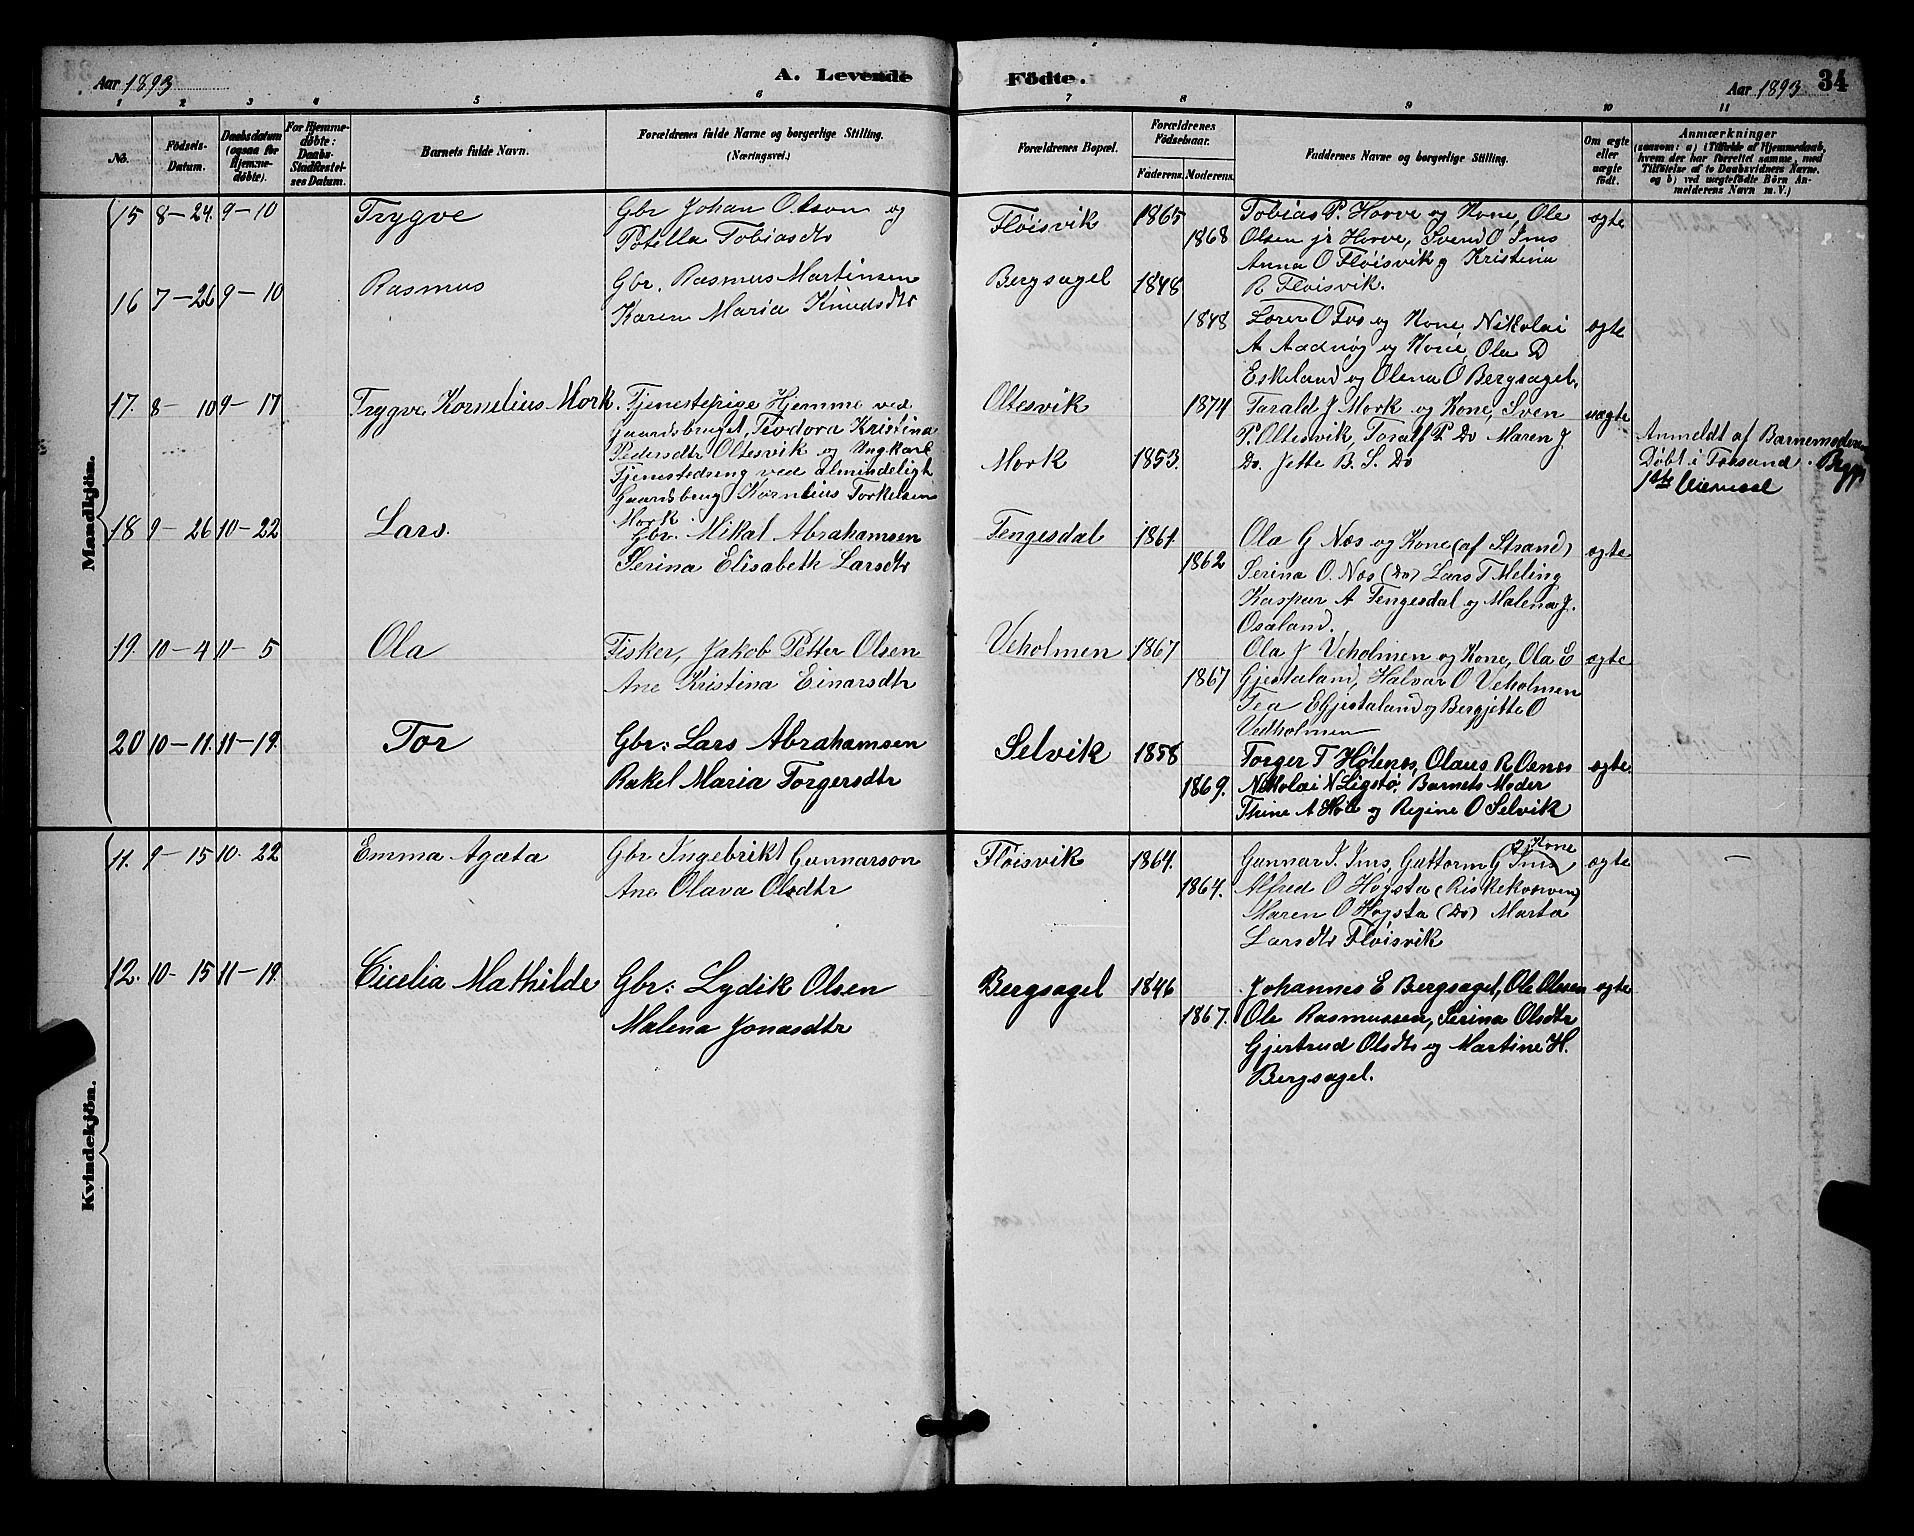 Aar 1893
A. Levende Födte.
Aar 1893
34
1 2 3 4 5 6 7 8 9 10 11
No.
Födsels-
Datum.
Daabsdatum
(ogsaa for
Hjemme-
döbte).
For Hjemme-
döbte:
Daabs-
Stadfæstel-
ses Datum.
Barnets fulde Navn.
Forældrenes fulde Navne og borgerlige Stilling.
(Næringsvei.)
Forældrenes Bopæl.
Forældrenes
Födselsaar.
Faderens. Moderens.
Faddernes Navne og borgerlige Stilling.
Om ægte
eller
uægte
födt.
Anmærkninger
(saasom: a) i Tilfælde af Hjemmedaab,
hvem der har forrettet samme, med
Tilföielse af to Daabsvidners Navne.
og b) ved uægtefödte Börn An-
melderens Navn m. V.)
Mandkjön.
15 8–24. 9–10 Trygve
Gbr Johan Olson og
Potella Tobiasdtr
Fløisvik 1865
1868
Tobias P. Horve og Kone, Ole
Olsen jr Horve, Svend O Ims
Anna O Fløisvik og Kristina
R Fløisvik.
ægte
16 7–26 9–10 Rasmus
Gbr. Rasmus Martinsen
Karen Maria Knudsdtr
Bergsagel 1848
1848
Lorer O Fos og Kone, Nikolai
A Aadnøg og Kone, Ola D
Eskeland og Olena O Bergsagel.
ægte
17. 8– 10 9– 17 Trygve Kornelius Mork.
Tjenestepige Hjemme ved
Gaardsbruget, Teodora Kristina
Pedersdtr Oltesvik og Ungkarl
Tjenestedreng ved almindeligt
Gaardsbrug Kornelius Torkelsen
Mork.
Oltesvik 1874
Mork 1853.
Tarald J Mork og Kone, Sven
P. Oltesvik, Toralf P. Do Maren J.
Do. Jette B. S. Do
uægte
Anmeldt af Barnemoderen
Døbt i Forsand.
18 9– 26 10–22 Lars.
Gbr. Mikal Abrahamsen
Serina Elisabeth Larsdtr
Tengesdal 1861
1862
Ola G Næs og Kone (af Strand)
Serina O. Næs (Do) Lars T Meling
Kaspar A Tengesdal og Malena J.
Osaland.
ægte
19. 10–4 11– 5 Ola
Fisker, Jakob Petter Olsen
Ane Kristina Einarsdtr
Veholmen 1867
1867
Ola J Veholmen og Kone, Ola E
Gjestaland, Halvar O Veholmen
Tea E Gjestaland og Bergjette O
Vedholmen
ægte
20 10–11. 11–19. Tor
Gbr: Lars Abrahamsen
Rakel Maria Torgersdtr
Selvik 1858
1869.
Torger T Hølenes, Olaus R Oenes
Nikolai N Ligstø, Barnets Moder
Thine A Hole og Regine O Selvik
ægte.
Kvindekjön.
11. 9–15 10. 22 Emma Agata
Gbr Ingebrikt Gunnarson
Ane Olava Olsdtr
Fløisvik 1864.
1864.
Gunnar I. Ims, Guttorm G Ims
Kone
Alfred O Høgsta (Riskekværven)
Maren O Høgsta (Do) Marta
Larsdtr Fløisvik
ægte
12. 10– 15 11–19. Cicelia Mathilde
Gbr: Lydik Olsen
Malena Jonasdtr
Bergsagel 1846
1867.
Johannes E Bergsagel, Ole Olsen
Ole Rasmussen, Serina Olsdtr
Gjertrud Olsdtr og Martine H.
Bergsagel.
ægte